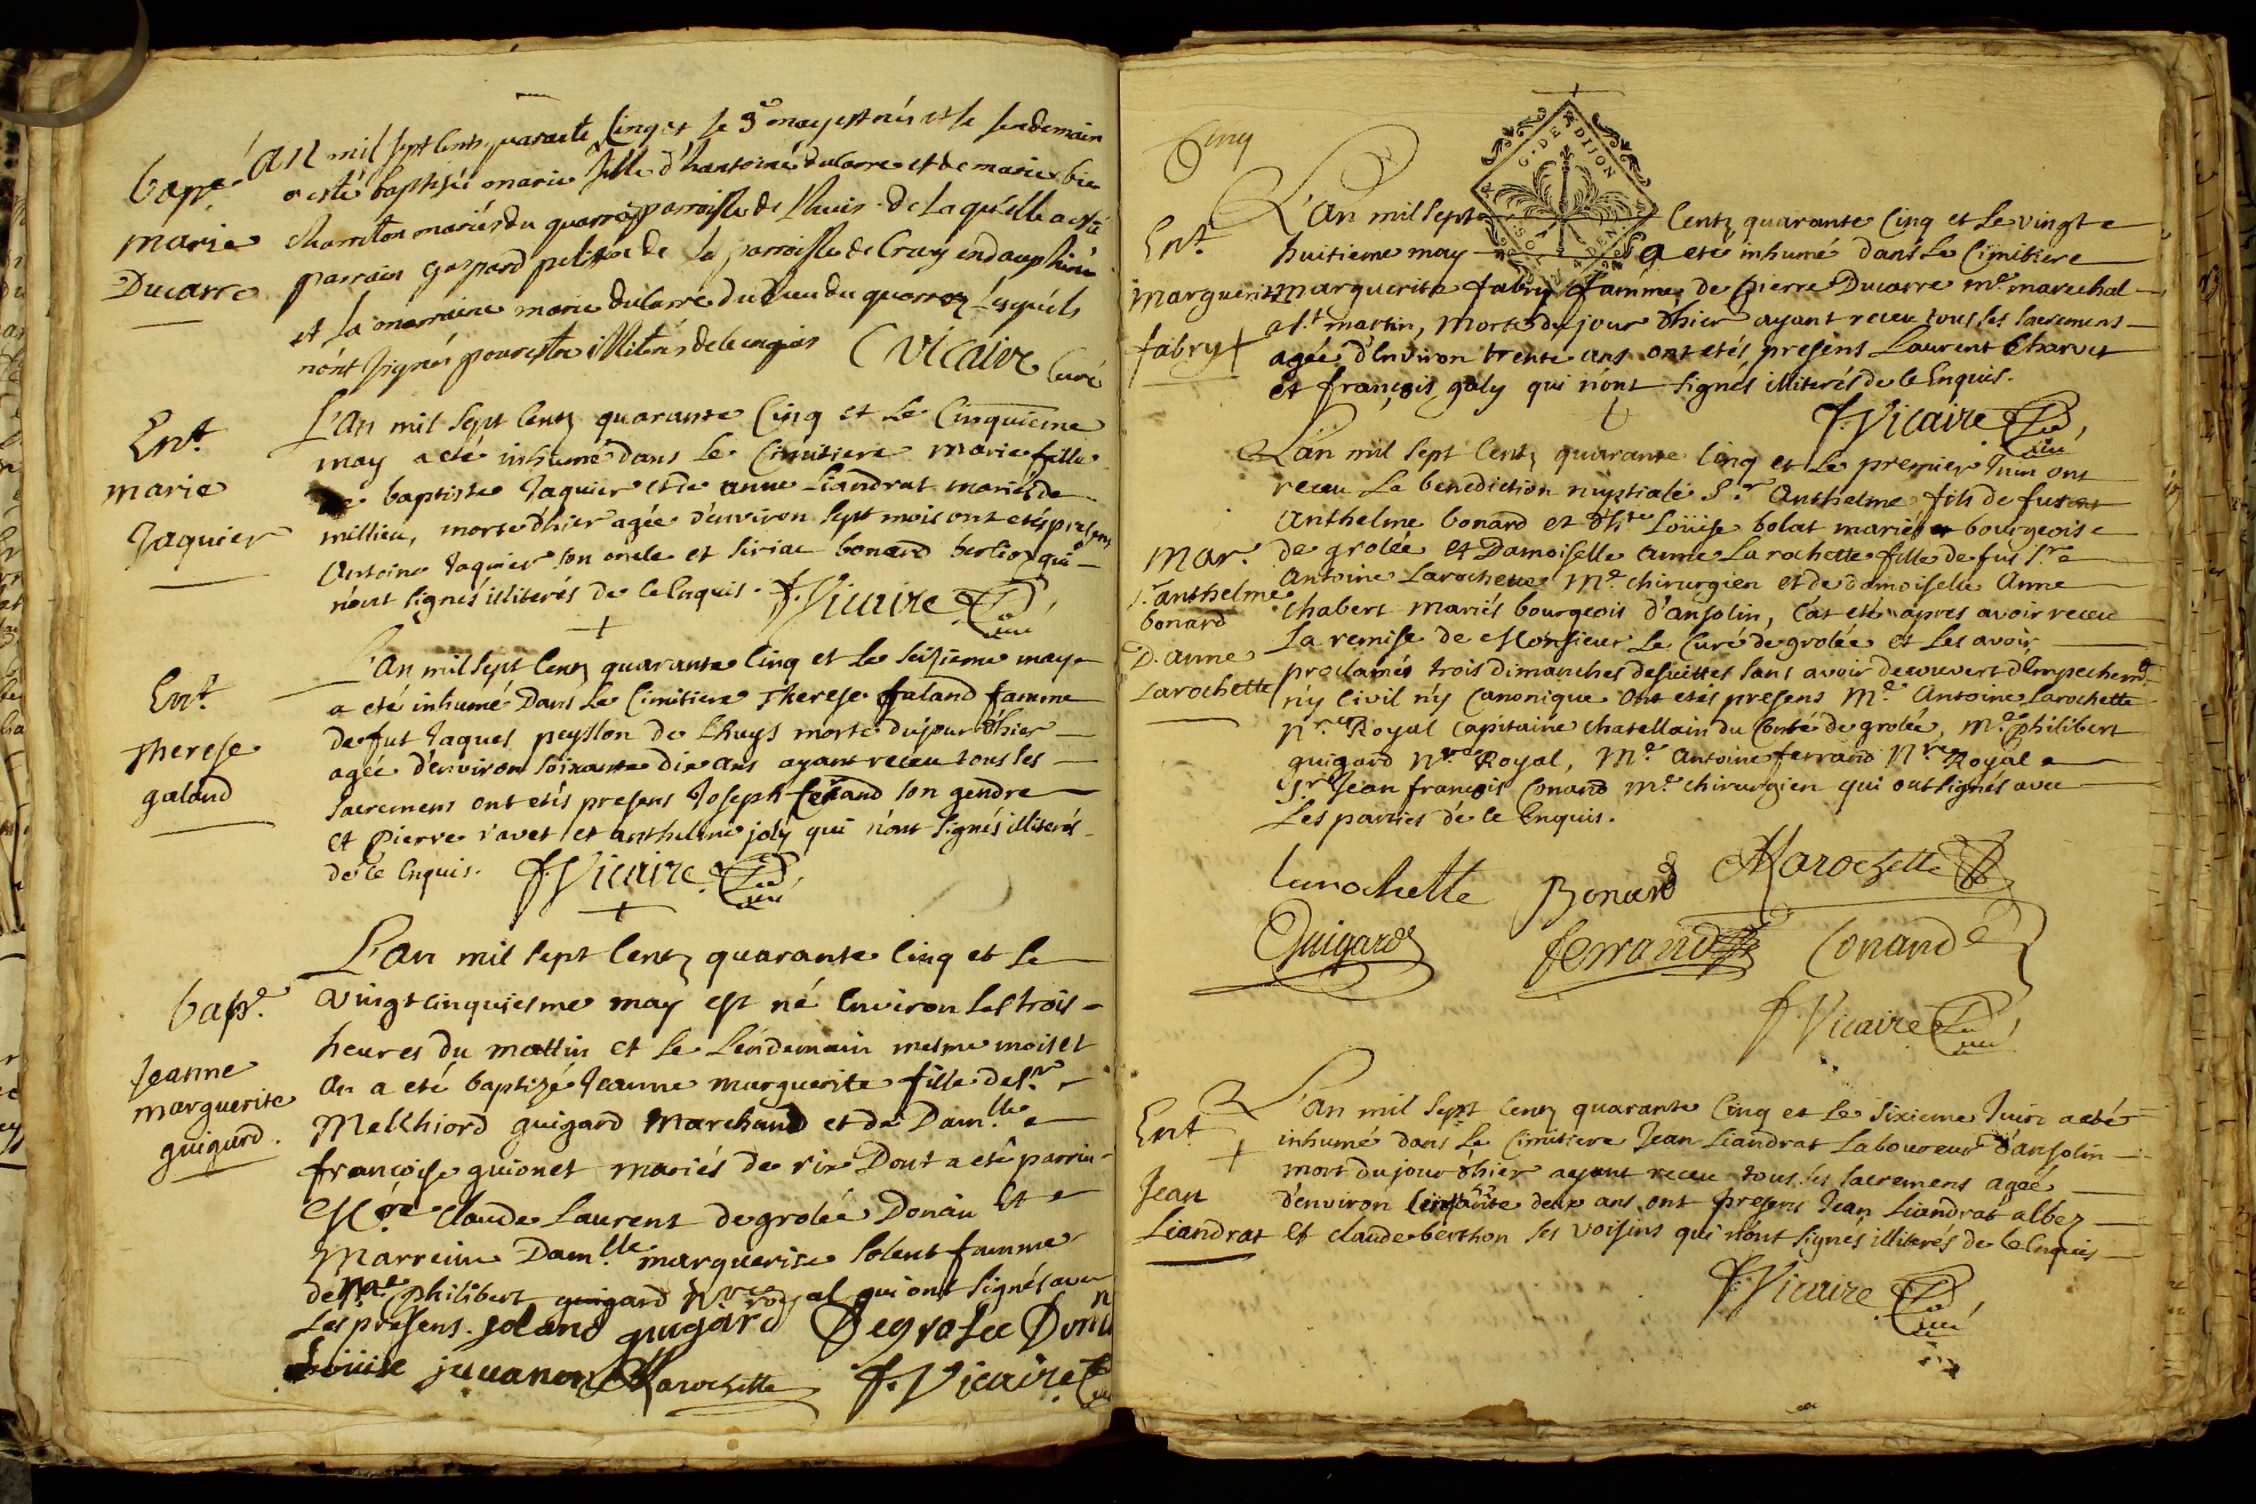 bapt.
marie
Ducarre
L'an mil sept cents quarante cinq et le 3e may est née et le lendemain
a esté baptisée marie fille d'hantoine ducarre et de marie
charreton mariés du quarroz parroisse de Lhuis de laquelle a esté
parrain gaspard de la parroisse de Cruy en dauphiné
et la marraine marie ducarre du lieu du quarroz lesquels
n'ont signés pour estre illiterés de ce enquis Vicaire Curé
Ent.
marie
Jaquier
L'an mil sept cents quarante cinq et le cinquieme
may a eté inhumé dans le cimitiere marie fille
de baptiste Jaquier et de anne Liandrat mariés de
millieu, morte d'hier agée d'environ sept mois ont etés presens
antoine Jaquier son oncle et siriac bonard berlioz qui
n'ont signés illiterés de ce enquis. f. Vicaire Curé
Ent.
Therese
galand
L'an mil sept cents quarante cinq et le seizieme may
a eté inhumé dans le cimitiere Therese galand famme
de fut Jaques peysson de Lhuys morte du jour d'hier
agée d'environ soixante dix ans ayant receu tous les
sacremens ont etés presens Joseph ferrand son gendre
et pierre ravet et anthelme joly qui n'ont signés illiterés
de ce enquis. f. Vicaire Curé
bapt.
Jeanne
marguerite
guigard.
L'an mil sept cents quarante cinq et le
vingt cinquiesme may est né environ les trois
heures du mattin et le lendemain mesme mois et
an a eté baptizé Jeanne marguerite fille de sr.
Melchiord guigard marchand et de Damlle.
françoise guionet mariés de rix Dont a eté parrin
Mre claude Laurent de grolée Donin et
Marreine Damlle. marguerite Solent famme
de Me philibert guigard Nre royal qui ont signés avec
les presens. Soland guigard Degrolée Donin
Loüise juvanon Larochette f. Vicaire Curé
Cinq
G. DE DIJON
Ent.
marguerite
fabry
L'an mil sept cents quarante cinq et le vingt
huitieme may a eté inhumé dans le Cimitiere
marguerite fabry famme de pierre Ducarre me marechal
a st martin, morte du jour d'hier ayant receu tous les sacremens
agée d'environ trente ans ont etés presens Laurent Charvet
et françois goly qui n'ont signés illiterés de ce enquis.
f. Vicaire Curé
mar.
sr. anthelme
bonard
D. anne
Larochette
L'an mil sept cents quarante cinq et le premier Juin ont
receu la benediction nuptiale Sr. Anthelme fils de fut
Anthelme bonard et d'hte Loüise bolat mariés bourgeois
de grolée et Damoiselle anne Larochette fille de fut sr.
Antoine Larochette Me. chirurgien et de damoiselle Anne
Chabert mariés bourgeois d'ansolin, c'at eté apres avoir receu
La remise de Monsieur Le Curé de grolée et Les avoir
proclamés trois dimanches desuittes sans avoir decouvert d'empechemt
n'y civil n'y canonique ont etés presens Me. Antoine Larochette
Nre. Royal capitaine chatellain du Comté de grolée, Me. philibert
guigard Nre. Royal, Me. Antoine ferrand Nre Royal
Sr. Jean françois Conand Me. chirurgien qui ont signés avec
Les parties de ce Enquis.
larochette Bonard Larochette
Guigard ferrand Conand
f. Vicaire Curé
Ent.
Jean
Liandrat
L'an mil sept cents quarante cinq et le sixieme Juin a eté
inhumé dans le Cimitiere Jean Liandrat Laboureur d'ansolin
mort du jour d'hier ayant receu tous les sacremens ageé
d'environ deux ans ont presens Jean Liandrat albez
et claude berthon ses voisins qui n'ont signés illiterés de ce enquis
f. Vicaire Curé